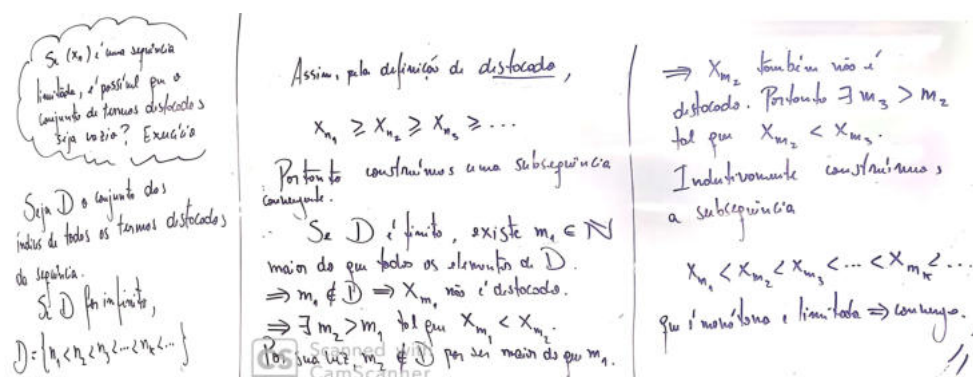 Se (xₙ) é uma sequência
limitada, é possível que o
conjunto de termos destacados
seja vazio? Exercício
Seja D o conjunto dos
índices de todos os termos destacados
da sequência.
Se D for infinito,
D = {n₁ < n₂ < n₃ < ... < nₖ < ...}
Assim, pela definição de destacado,
xₙ₁ ≥ xₙ₂ ≥ xₙ₃ ≥ ...
Portanto construimos uma subsequência
convergente.
Se D é finito, existe m₁ ∈ ℕ
maior do que todos os elementos de D.
⇒ m₁ ∉ D ⇒ xₘ₁ não é destacado.
⇒ ∃ m₂ > m₁ tal que xₘ₁ < xₘ₂.
Por sua vez, m₂ ∉ D por ser maior do que m₁.
CS Scanned with
CamScanner
⇒ xₘ₂ também não é
destacado. Portanto ∃ m₃ > m₂
tal que xₘ₂ < xₘ₃.
Indutivamente construimos
a subsequência
xₘ₁ < xₘ₂ < xₘ₃ < ... < xₘₖ < ...
que é monótona e limitada ⇒ converge.